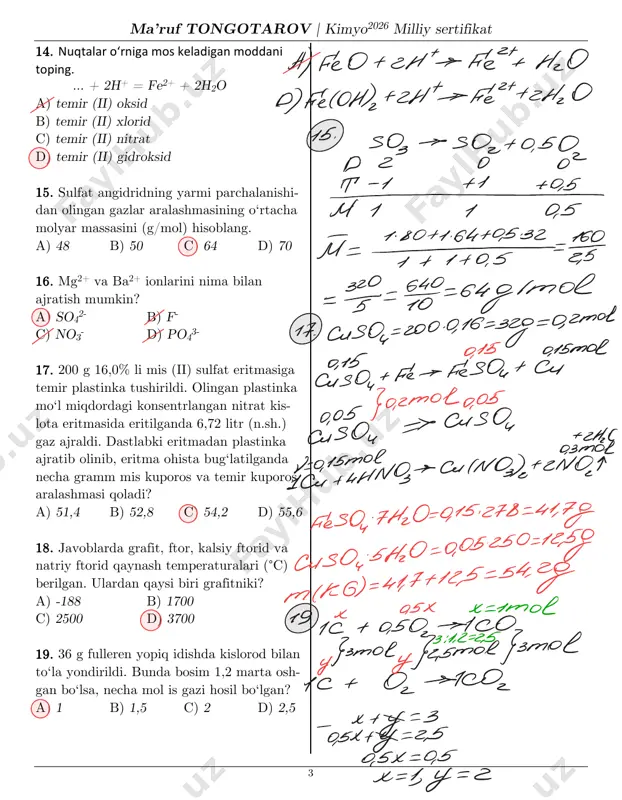 Ma'ruf TONGOTAROV | Kimyo²⁰²⁶ Milliy sertifikat
14. Nuqtalar o'rniga mos keladigan moddani
toping.
... + 2H⁺ = Fe²⁺ + 2H₂O
A) temir (II) oksid
B) temir (II) xlorid
C) temir (II) nitrat
D) temir (II) gidroksid
15. Sulfat angidridning yarmi parchalanishi-
dan olingan gazlar aralashmasining o'rtacha
molyar massasini (g/mol) hisoblang.
A) 48 B) 50 C) 64 D) 70
16. Mg²⁺ va Ba²⁺ ionlarini nima bilan
ajratish mumkin?
A) SO₄²⁻ B) F⁻
C) NO₃⁻ D) PO₄³⁻
17. 200 g 16,0% li mis (II) sulfat eritmasiga
temir plastinka tushirildi. Olingan plastinka
mo'l miqdordagi konsentrlangan nitrat kis-
lota eritmasida eritilganda 6,72 litr (n.sh.)
gaz ajraldi. Dastlabki eritmadan plastinka
ajratib olinib, eritma ohista bug'latilganda
necha gramm mis kuporos va temir kuporos
aralashmasi qoladi?
A) 51,4 B) 52,8 C) 54,2 D) 55,6
18. Javoblarda grafit, ftor, kalsiy ftorid va
natriy ftorid qaynash temperaturalari (°C)
berilgan. Ulardan qaysi biri grafitniki?
A) -188 B) 1700
C) 2500 D) 3700
19. 36 g fulleren yopiq idishda kislorod bilan
to'la yondirildi. Bunda bosim 1,2 marta osh-
gan bo'lsa, necha mol is gazi hosil bo'lgan?
A) 1 B) 1,5 C) 2 D) 2,5
A) FeO + 2H⁺ → Fe²⁺ + H₂O
D) Fe(OH)₂ + 2H⁺ → Fe²⁺ + 2H₂O
15. SO₃ → SO₂ + 0,5O₂
D 2 0 0
T -1 +1 +0,5
M 1 1 0,5
M̄ = 1·80+1·64+0,5·32 / 1+1+0,5 = 160 / 2,5
= 320/5 = 640/10 = 64 g/mol
17 CuSO₄ = 200·0,16 = 32g = 0,2mol
0,15 0,15 0,15mol
CuSO₄ + Fe → FeSO₄ + Cu
}0,2mol 0,05
0,05
CuSO₄ ⇒ CuSO₄
+2H₂O
0,15mol 0,3mol
1Cu + 4HNO₃ → Cu(NO₃)₂ + 2NO₂↑
FeSO₄·7H₂O = 0,15·278 = 41,7g
CuSO₄·5H₂O = 0,05·250 = 12,5g
m(KG) = 41,7 + 12,5 = 54,2g
x 0,5x x=1mol
19 1C + 0,5O₂ → 1CO
3:1,2=2,5
}3mol }2,5mol }3mol
y y
1C + O₂ → 1CO₂
x + y = 3
0,5x + y = 2,5
0,5x = 0,5
x = 1, y = 2
3
FaylHub.uz
FaylHub.uz
FaylHub.uz
uz
uz